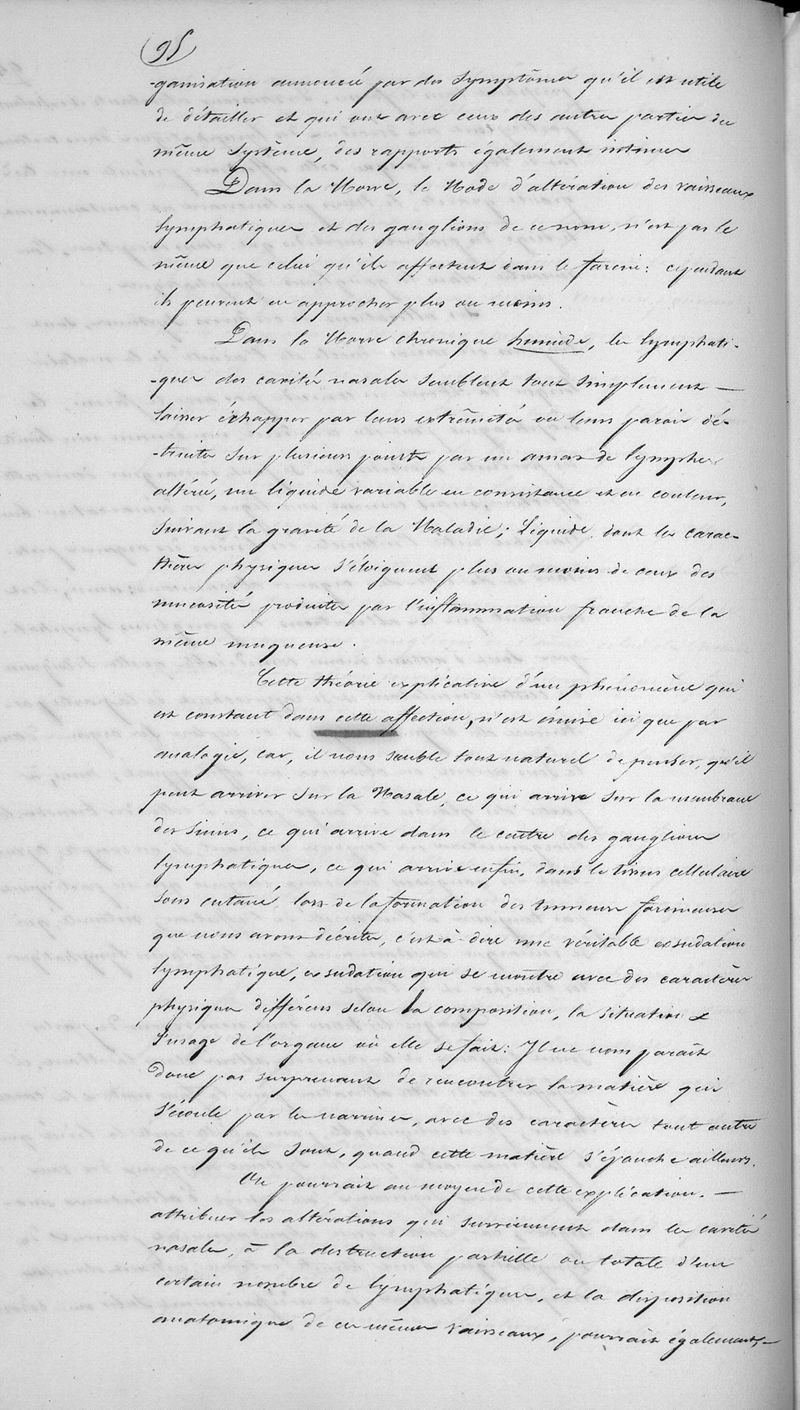 95
-ganisation annoncé par des symptômes qu'il est utile
de détailler et qui ont avec ceux des autres parties du
même système, des rapports également intimes
Dans la Morve, le Mode d'altération des vaisseaux
lymphatiques et des ganglions de ce nom, n'est pas le
même que celui qu'ils affectent dans le farcin: cependant
ils peuvent en approcher plus ou moins.
Dans la Morve chronique humide, les lymphati-
-ques des cavités nasales semblent tout simplement —
laisser échapper par leurs extrémités ou leurs parois dé-
-truites sur plusieurs points par un amas de lymphe
altéré, un liquide variable en consistance et en couleur,
suivant la gravité de la Maladie; liquide, dont les carac-
thères physiques s'éloignent plus ou moins de ceux des
mucosités produites par l'inflammation franche de la
même muqueuse.
Cette théorie explicative d'un phénomène qui
est constant dans cette affection, n'est émise ici que par
analogie, car, il nous semble tout naturel de penser, qu'il
peut arriver sur la Nasale, ce qui arrive sur la membrane
des sinus, ce qui arrive dans le centre des ganglions
lymphatiques, ce qui arrive enfin, dans le tissus cellulaire
sous cutané, lors de la formation des tumeurs farcineuses
que nous avons décrites, c'est à dire une véritable exsudation
lymphatique, exsudation qui se montre avec des caractères
physiques différens selon la composition, la situation &
l'usage de l'organe où elle se fait: Il ne nous paraît
donc pas surprenant de rencontrer la matière qui
s'écoule par les narrines, avec des caractères tout autres
de ce qu'ils sont, quand cette matière s'épanche ailleurs.
On pourrait au moyen de cette explication. —
attribuer les altérations qui surviennent dans les cavités
nasales, à la destruction partielle ou totale d'un
certain nombre de lymphatiques, et la disposition
anatomique de ces mêmes vaisseaux, pourrait également, —